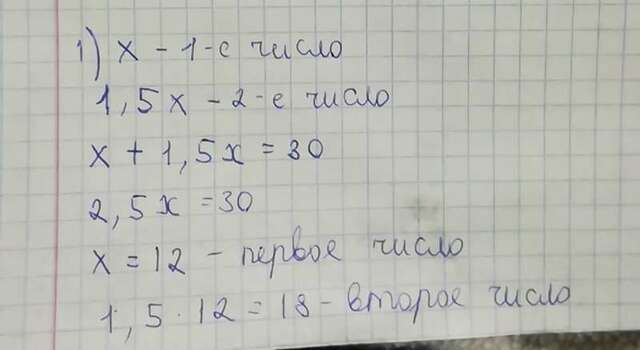 1) x - 1-е число
1,5x - 2-е число
x + 1,5x = 30
2,5x = 30
x = 12 - первое число
1,5 · 12 = 18 - второе число